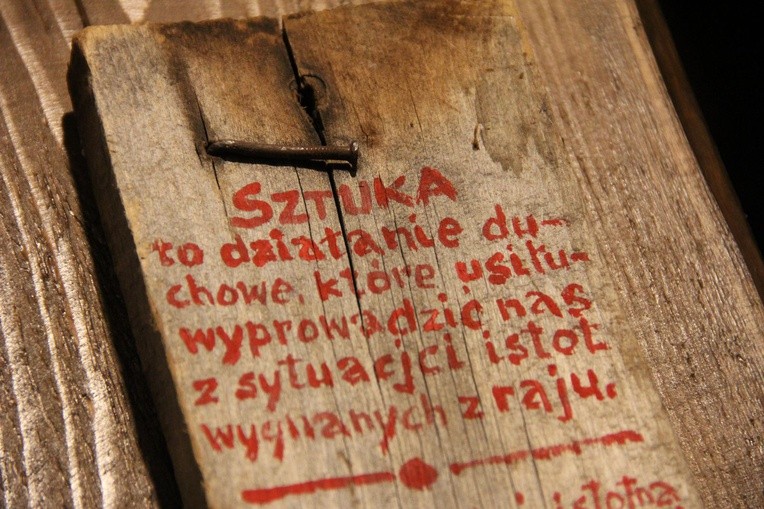 SZTUKA
to działanie du-
chowe, które usiłu-
wyprowadzić nas
z sytuacjci istot
wygnanych z raju.
istotną